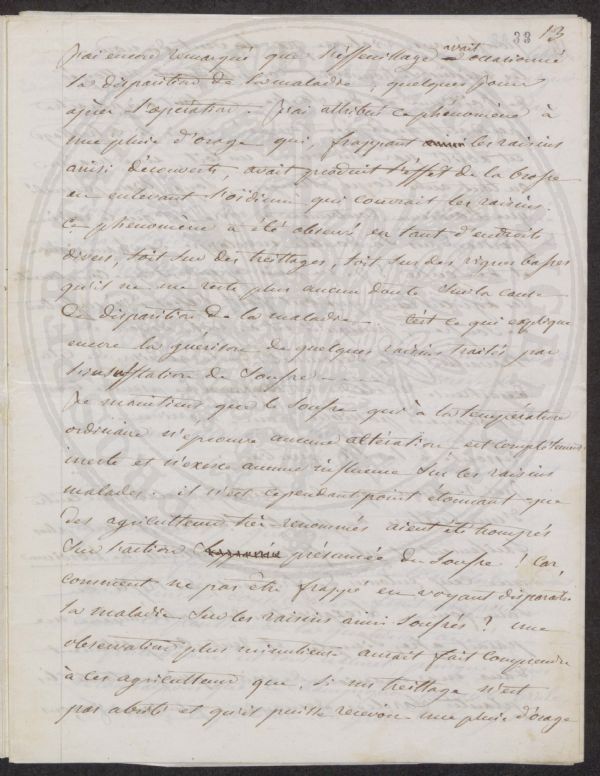 33 13
j'ai encore remarqué que l'effeuillage avait occasionné
la disparition de la maladie, quelques jours
après l'opération. J'ai attribué ce phénomène à
une pluie d'orage qui, frappant les raisins
ainsi découverts, avait produit l'effet de la brosse
en enlevant l'oïdium qui couvrait les raisins.
Ce phénomène a été observé en tant d'endroits
divers, soit sur des treillages, soit sur des vignes basses
qu'il ne me reste plus aucun doute sur la cause
de disparition de la maladie. C'est ce qui explique
encore la guérison de quelques raisins traités par
l'insufflation de soufre.
Je maintiens que le soufre qui à la température
ordinaire n'éprouve aucune altération est complètement
inerte et n'exerce aucune influence sur les raisins
malades. il n'est cependant point étonnant que
des agriculteurs très renommés aient été trompés
sur l'action présumée du soufre ! Car,
comment ne pas être frappé en voyant disparaître
la maladie sur les raisins ainsi soufrés ? une
observation plus minutieuse aurait fait comprendre
à ces agriculteurs que, si un treillage n'est
pas abrité et qu'il puisse recevoir une pluie d'orage